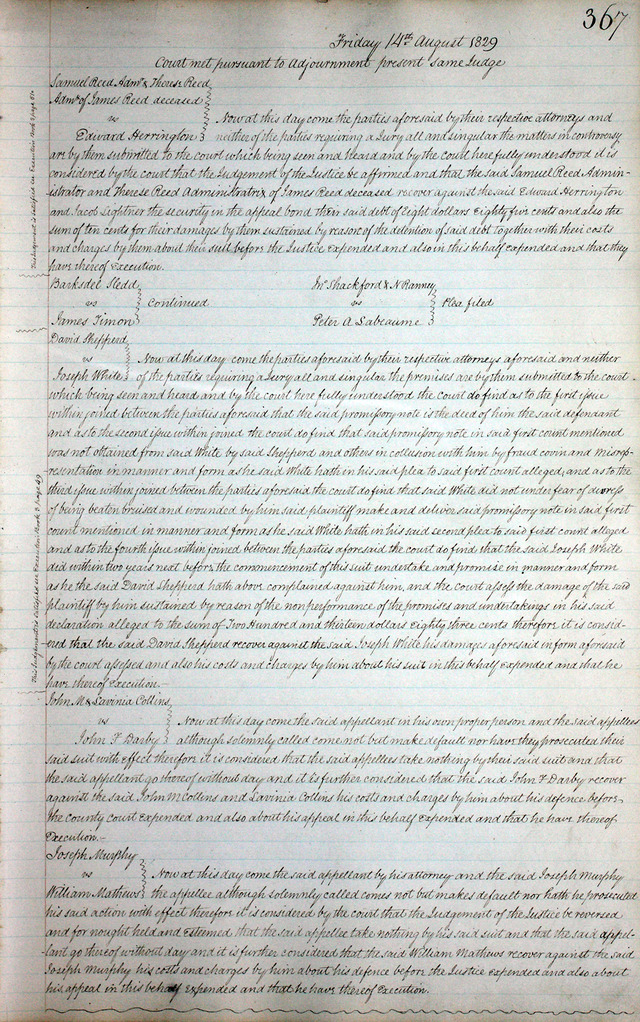 367
Friday 14th August 1829
Court met pursuant to Adjournment present same Judge
Samuel Reed Admr & Therese Reed
Admx of James Reed deceased
vs Now at this day come the parties aforesaid by their respective attorneys and
Edward Herrington neither of the parties requiring a Jury all and singular the matters in controversy
are by them submitted to the court which being seen and heard and by the court here fully understood it is
considered by the court that the Judgement of the Justice be affirmed and that the said Samuel Reed Admin-
istrator and Therese Reed Administratrix of James Reed deceased recover against the said Edward Herrington
and Jacob Lightner the security in the appeal bond their said debt of Eight dollars Eighty five cents and also the
sum of ten cents for their damages by them sustained by reason of the detention of said debt together with their costs
and charges by them about their suit before the Justice expended and also in this behalf expended and that they
have thereof Execution.
This Judgement is satisfied see Execution Book
Barksdel Sledd
vs Continued
James Timon
Jno Shackford & N Ranney
vs Plea filed
Peter A Labeaume
David Shepperd
vs Now at this day come the parties aforesaid by their respective attorneys aforesaid and neither
Joseph White of the parties requiring a Jury all and singular the premises are by them submitted to the court
which being seen and heard and by the court here fully understood the court do find as to the first issue
within joined between the parties aforesaid that the said promissory note is the deed of him the said defendant
and as to the second issue within joined the court do find that said promissory note in said first count mentioned
was not obtained from said White by said Shepperd and others in collusion with him by fraud covin and misrep-
resentation in manner and form as he said White hath in his said plea to said first count alleged, and as to the
third issue within joined between the parties aforesaid the court do find that said White did not under fear of duress
of being beaten bruised and wounded by him said plaintiff make and deliver said promissory note in said first
count mentioned in manner and form as he said White hath in his said second plea to said first count alleged
and as to the fourth issue within joined between the parties aforesaid the court do find that the said Joseph White
did within two years next before the commencement of this suit undertake and promise in manner and form
as he the said David Shepperd hath above complained against him, and the court assess the damage of the said
plaintiff by him sustained by reason of the nonperformance of the promises and undertakings in his said
declaration alleged to the sum of Two Hundred and thirteen dollars Eighty three cents therefore it is consid-
ered that the said David Shepperd recover against the said Joseph White his damages aforesaid in form aforesaid
by the court assessed and also his costs and charges by him about his suit in this behalf expended and that he
have thereof Execution.-
This Judgement is satisfied see Execution Book 3 page 49
John M & Lavinia Collins
vs Now at this day come the said appellant in his own proper person and the said appellees
John F Darby although solemnly called come not but make default nor have they prosecuted their
said suit with Effect therefore it is considered that the said appellees take nothing by their said suit and that
the said appellant go thereof without day and it is further considered that the said John F Darby recover
against the said John M Collins and Lavinia Collins his costs and charges by him about his defence before
the county court expended and also about his appeal in this behalf expended and that he have thereof
Execution.-
Joseph Murphy
vs Now at this day come the said appellant by his attorney and the said Joseph Murphy
William Mathews the appellee although solemnly called comes not but makes default nor hath he prosecuted
his said action with effect therefore it is considered by the court that the Judgement of the Justice be reversed
and for nought held and Esteemed that the said appellee take nothing by his said suit and that the said appel-
lant go thereof without day and it is further considered that the said William Mathews recover against the said
Joseph Murphy his costs and charges by him about his defence before the Justice expended and also about
his appeal in this behalf Expended and that he have thereof Execution.